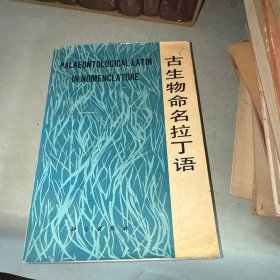 PALAEONTOLOGICAL LATIN
IN NOMENCLATURE
古生物命名拉丁语
科学出版社